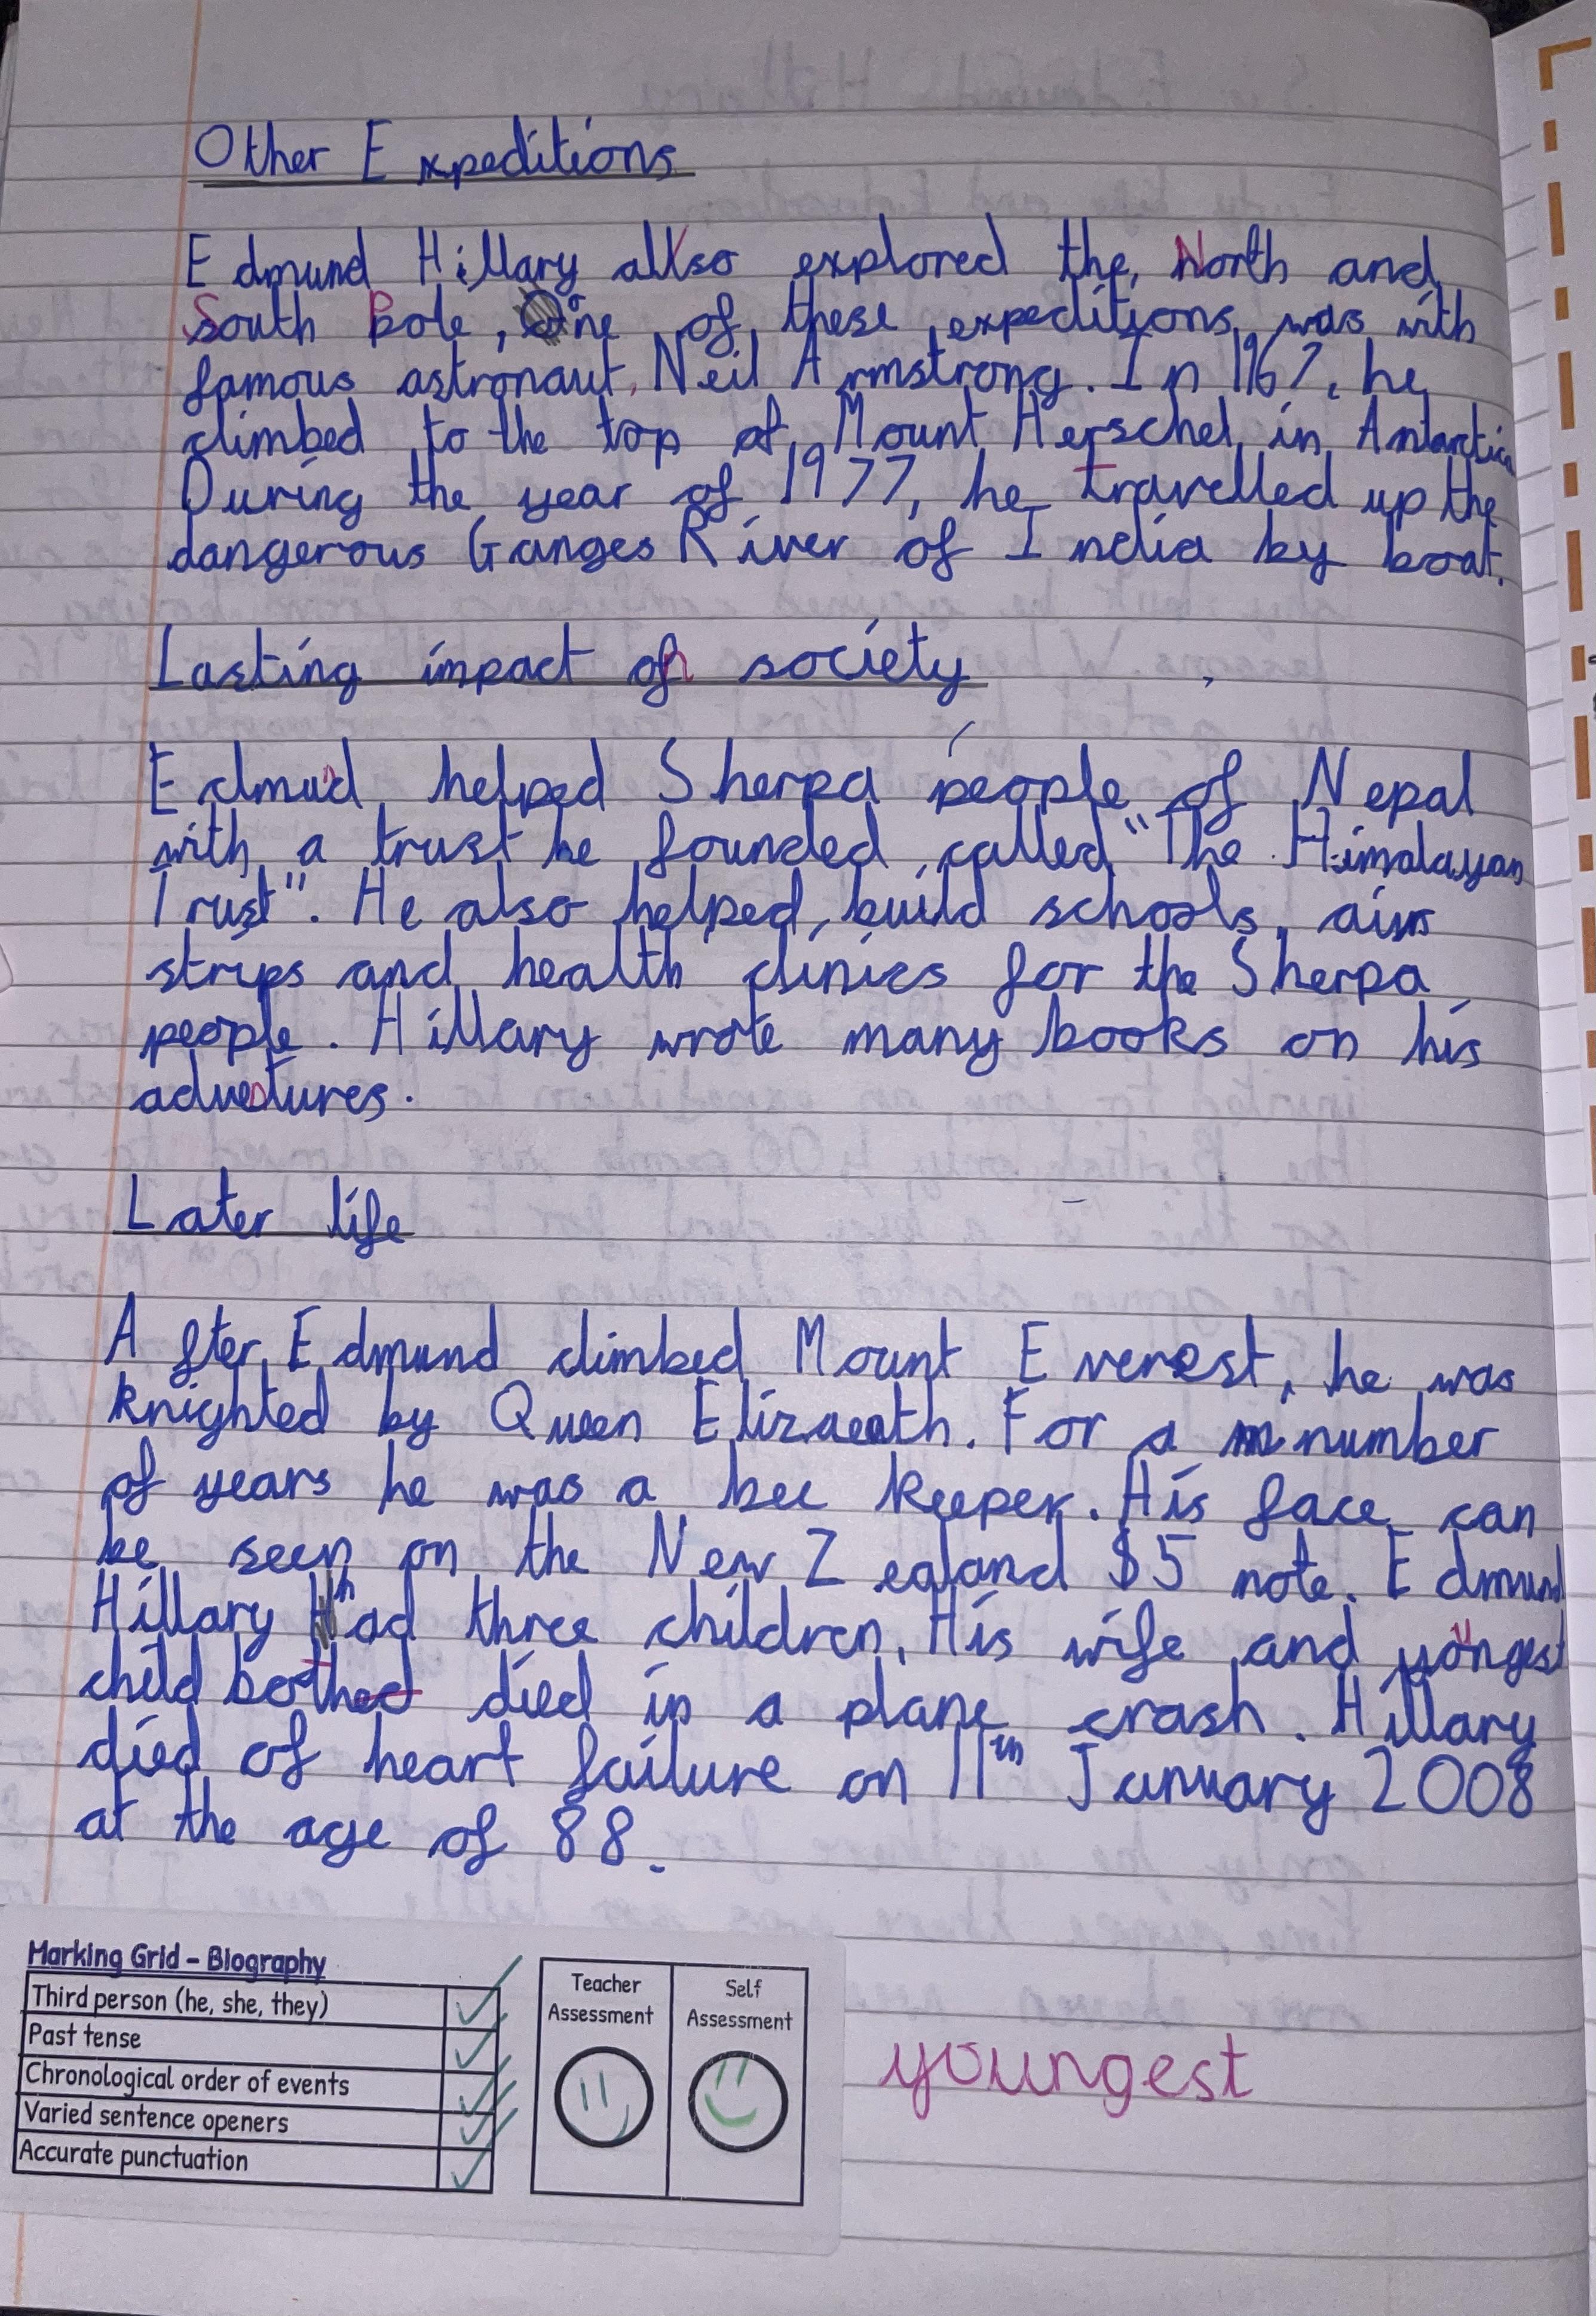 Other Expeditions
Edmund Hillary allso explored the North and
South Pole, One of these expeditions was with
famous astronaut, Neil Armstrong. In 1967, he
climbed to the top of Mount Herschel in Antarctica
During the year of 1977, he travelled up the
dangerous Ganges River of India by boat.
Lasting impact on society
Edmund helped Sherpa people of Nepal
with a trust he founded called "The Himalayan
Trust". He also helped build schools, airs
strips and health clinics for the Sherpa
people. Hillary wrote many books on his
adventures.
Later life
After Edmund climbed Mount Everest, he was
knighted by Queen Elizaeath. For a number
of years he was a bee keeper. His face can
be seen on the New Zealand $5 note. Edmund
Hillary had three children. His wife and youngest
child bothed died in a plane crash. Hillary
died of heart failure on 11th January 2008
at the age of 88.
Marking Grid - Biography
Third person (he, she, they)
Past tense
Chronological order of events
Varied sentence openers
Accurate punctuation
Teacher
Assessment
Self
Assessment
youngest